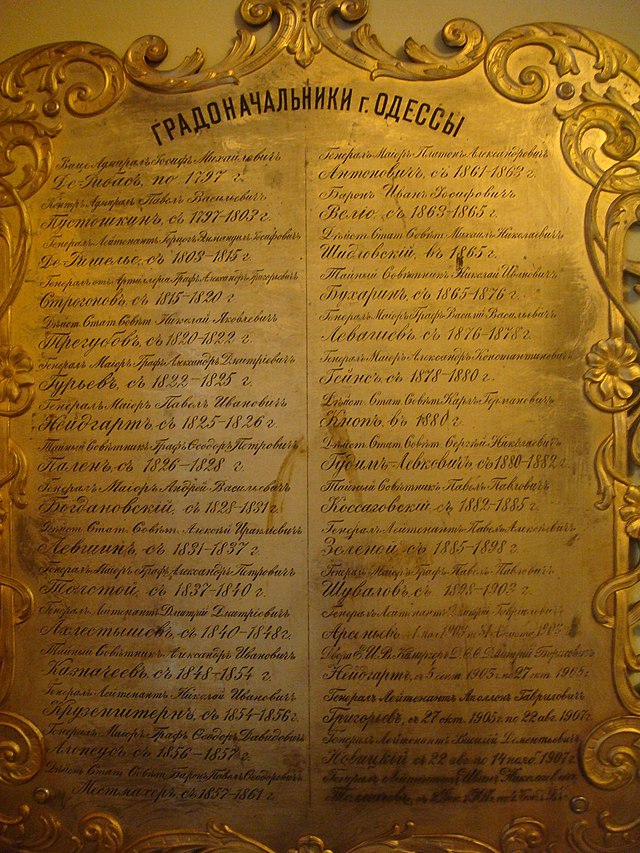 ГРАДОНАЧАЛЬНИКИ г. ОДЕССЫ
Вице Адмиралъ Іосифъ Михайловичъ
Де-Рибасъ, по 1797 г.
Контръ Адмиралъ Павелъ Васильевичъ
Пустошкинъ, съ 1797-1803 г.
Генералъ Лейтенантъ Герцогъ Эммануилъ Іосифовичъ
Де-Ришелье, съ 1803-1815 г.
Генералъ отъ Артиллеріи Графъ Александръ Григорьевичъ
Строгоновъ, съ 1815-1820 г.
Дѣйст. Стат. Совѣт. Николай Яковлевичъ
Трегубовъ, съ 1820-1822 г.
Генералъ Маіоръ Графъ Александръ Дмитріевичъ
Гурьевъ, съ 1822-1825 г.
Генералъ Маіоръ Павелъ Ивановичъ
Нейдгартъ, съ 1825-1826 г.
Тайный Совѣтникъ Графъ Ѳеодоръ Петровичъ
Паленъ, съ 1826-1828 г.
Генералъ Маіоръ Андрей Васильевичъ
Богдановскій, съ 1828-1831 г.
Дѣйст. Стат. Совѣт. Алексѣй Иракліевичъ
Левшинъ, съ 1831-1837 г.
Генералъ Маіоръ Графъ Александръ Петровичъ
Толстой, съ 1837-1840 г.
Генералъ Лейтенантъ Дмитрій Дмитріевичъ
Ахлестышовъ, съ 1840-1848 г.
Тайный Совѣтникъ Александръ Ивановичъ
Казначеевъ, съ 1848-1854 г.
Генералъ Лейтенантъ Николай Ивановичъ
Крузенштернъ, съ 1854-1856 г.
Генералъ Маіоръ Графъ Ѳеодоръ Давидовичъ
Алопеусъ, съ 1856-1857 г.
Дѣйст. Стат. Совѣт. Баронъ Павелъ Ѳеодоровичъ
Местмахеръ, съ 1857-1861 г.
Генералъ Маіоръ Платонъ Александровичъ
Антоновичъ, съ 1861-1863 г.
Баронъ Иванъ Іосифовичъ
Веліо, съ 1863-1865 г.
Дѣйст. Стат. Совѣт. Михаилъ Николаевичъ
Шидловскій, въ 1865 г.
Тайный Совѣтникъ Николай Ивановичъ
Бухаринъ, съ 1865-1876 г.
Генералъ Маіоръ Графъ Василій Васильевичъ
Левашевъ, съ 1876-1878 г.
Генералъ Маіоръ Александръ Константиновичъ
Гейнсъ, съ 1878-1880 г.
Дѣйст. Стат. Совѣт. Карлъ Германовичъ
Кнопъ, въ 1880 г.
Дѣйст. Стат. Совѣт. Сергѣй Николаевичъ
Гудимъ-Левковичъ, съ 1880-1882 г.
Тайный Совѣтникъ Павелъ Павловичъ
Коссаговскій, съ 1882-1885 г.
Генералъ Лейтенантъ Павелъ Алексѣевичъ
Зеленой, съ 1885-1898 г.
Генералъ Маіоръ Графъ Павелъ Павловичъ
Шуваловъ, съ 1898-1903 г.
Генералъ Лейтенантъ Дмитрій Гавриловичъ
Арсеньевъ,
Двора Е.И.В. Камергеръ Д.С.С. Дмитрій Борисовичъ
Нейдгартъ, съ 5 1903 г. по 27 окт. 1905 г.
Генералъ Лейтенантъ Аполлонъ Гавриловичъ
Григорьевъ, съ 27 окт. 1905 г. по 22 авг. 1907 г.
Генералъ Лейтенантъ Василій Дементьевичъ
Новицкій съ 22 авг. по 14 нояб. 1907 г.
Генералъ Лейтенантъ Иванъ Николаевичъ
Толмачевъ,